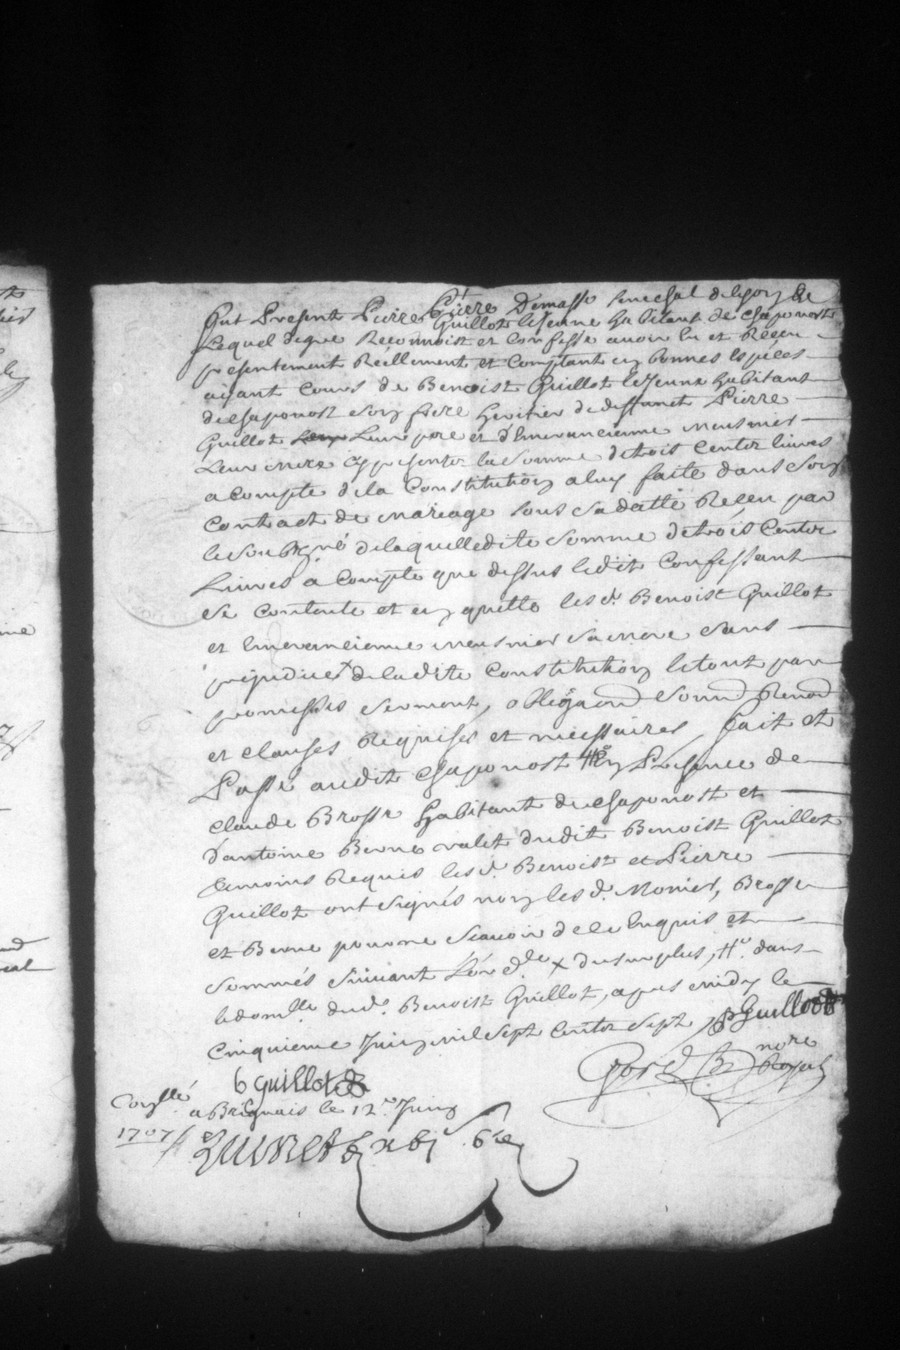 fut Present Pierre
Guillot le Jeune habitant de chaponost
Lequel degré Reconnoist et confesse avoir eu et Receu
presentement Reellement et comptant en bonnes Espèces
aÿant cours de Benoist Guillot le Jeune habitant
de chaponost son frere heritier de deffunct Pierre
Guillot Leur pere et d'Emerancienne meusnier
Leur mere la somme de trois centz livres
a compte de la Constitution a luy faite dans son
contract de mariage sous sa datte Receu par
le soubsigné de laquelledite somme de trois centz
Livres a compte que dessus ledit confessant
se contente et en quitte les d. Benoist Guillot
et Emerancienne meusnier sa mere sans
préjudice de la dite Constitution le tout par
promesses serment, obligaon soumd Renod
et clauses Requises et necessaires, fait et
Passé audit chaponost en Presence de
claude Brosse habitant de chaponost et
d'antoine Berne valet dudit Benoist Guillot
temoins Requis les d. Benoist et Pierre
Guillot ont signés non les d. Monier, Brosse
et Berne pour ne scavoir de ce Enquis et
sommés suivant L'or. d.le x du surplus, dans
le domlle dud. Benoist Guillot, apres midy le
cinquieme Juin mil sept centz sept / P Guillot
b guillot
nore Royal
a Brignais le 12.e Juin
1707